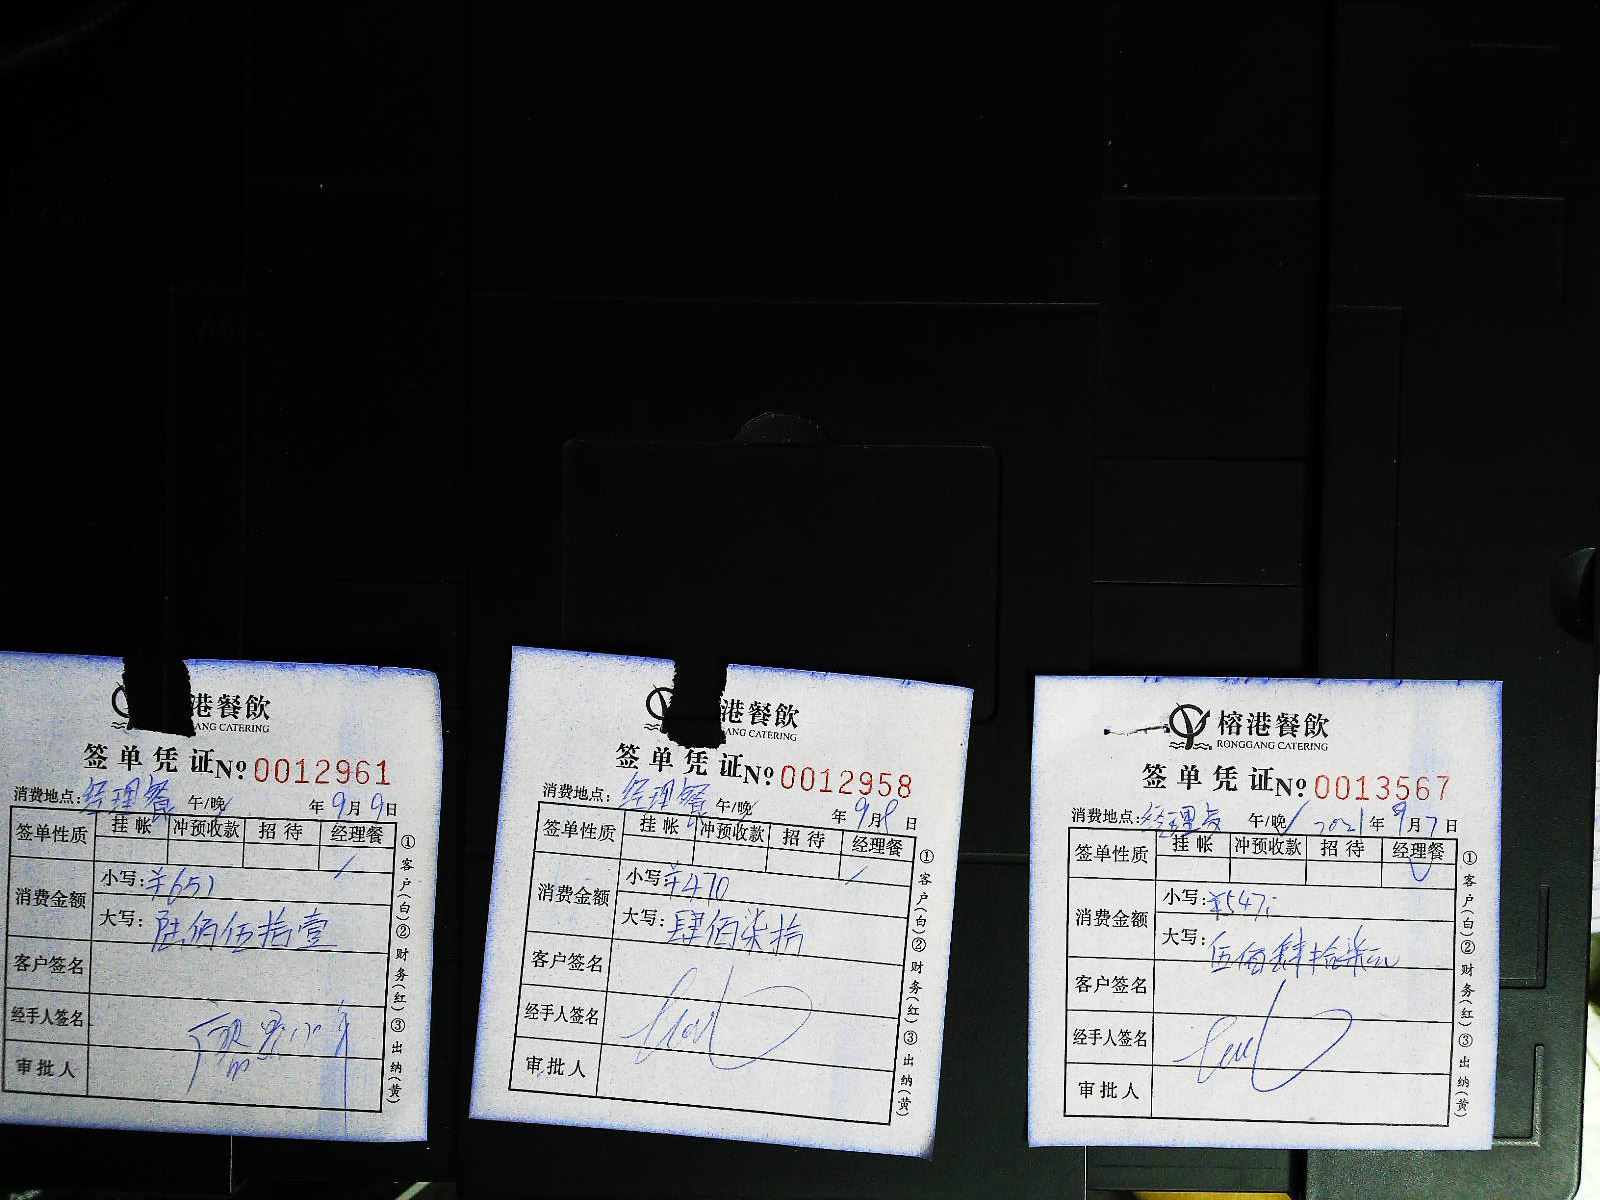 港餐飲
ANG CATERING
签单凭证 № 0012961
消费地点:经理餐 午/晚 年9月9日
签单性质 挂帐 冲预收款 招待 经理餐
消费金额 小写:¥651
大写:陆佰伍拾壹
客户签名
经手人签名
审批人
①客户(白)②财务(红)③出纳(黄)
港餐飲
ANG CATERING
签单凭证 № 0012958
消费地点:经理餐 午/晚 年9月8日
签单性质 挂帐 冲预收款 招待 经理餐
消费金额 小写:¥470
大写:肆佰柒拾
客户签名
经手人签名
审批人
①客户(白)②财务(红)③出纳(黄)
榕港餐飲
RONGGANG CATERING
签单凭证 № 0013567
消费地点:经理 午/晚 2021年9月7日
签单性质 挂帐 冲预收款 招待 经理餐
消费金额 小写:¥547
大写:伍佰肆拾柒元
客户签名
经手人签名
审批人
①客户(白)②财务(红)③出纳(黄)